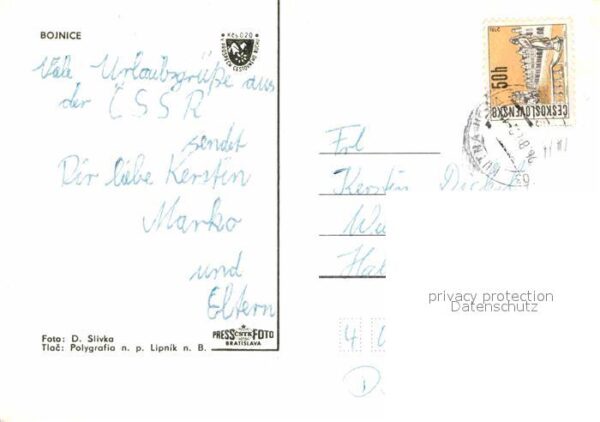 BOJNICE
Kčs 0.20
Viele Urlaubsgrüße aus
der ČSSR
sendet
Dir liebe Kerstin
Marko
und
Eltern
Foto: D. Slivka
Tlač: Polygrafia n. p. Lipník n. B.
PRESSFOTO
ČSTK
BRATISLAVA
TELČ
50h
ČESKOSLOVENSKO
KUTNÁ
Frl
Kerstin
4
D
privacy protection
Datenschutz